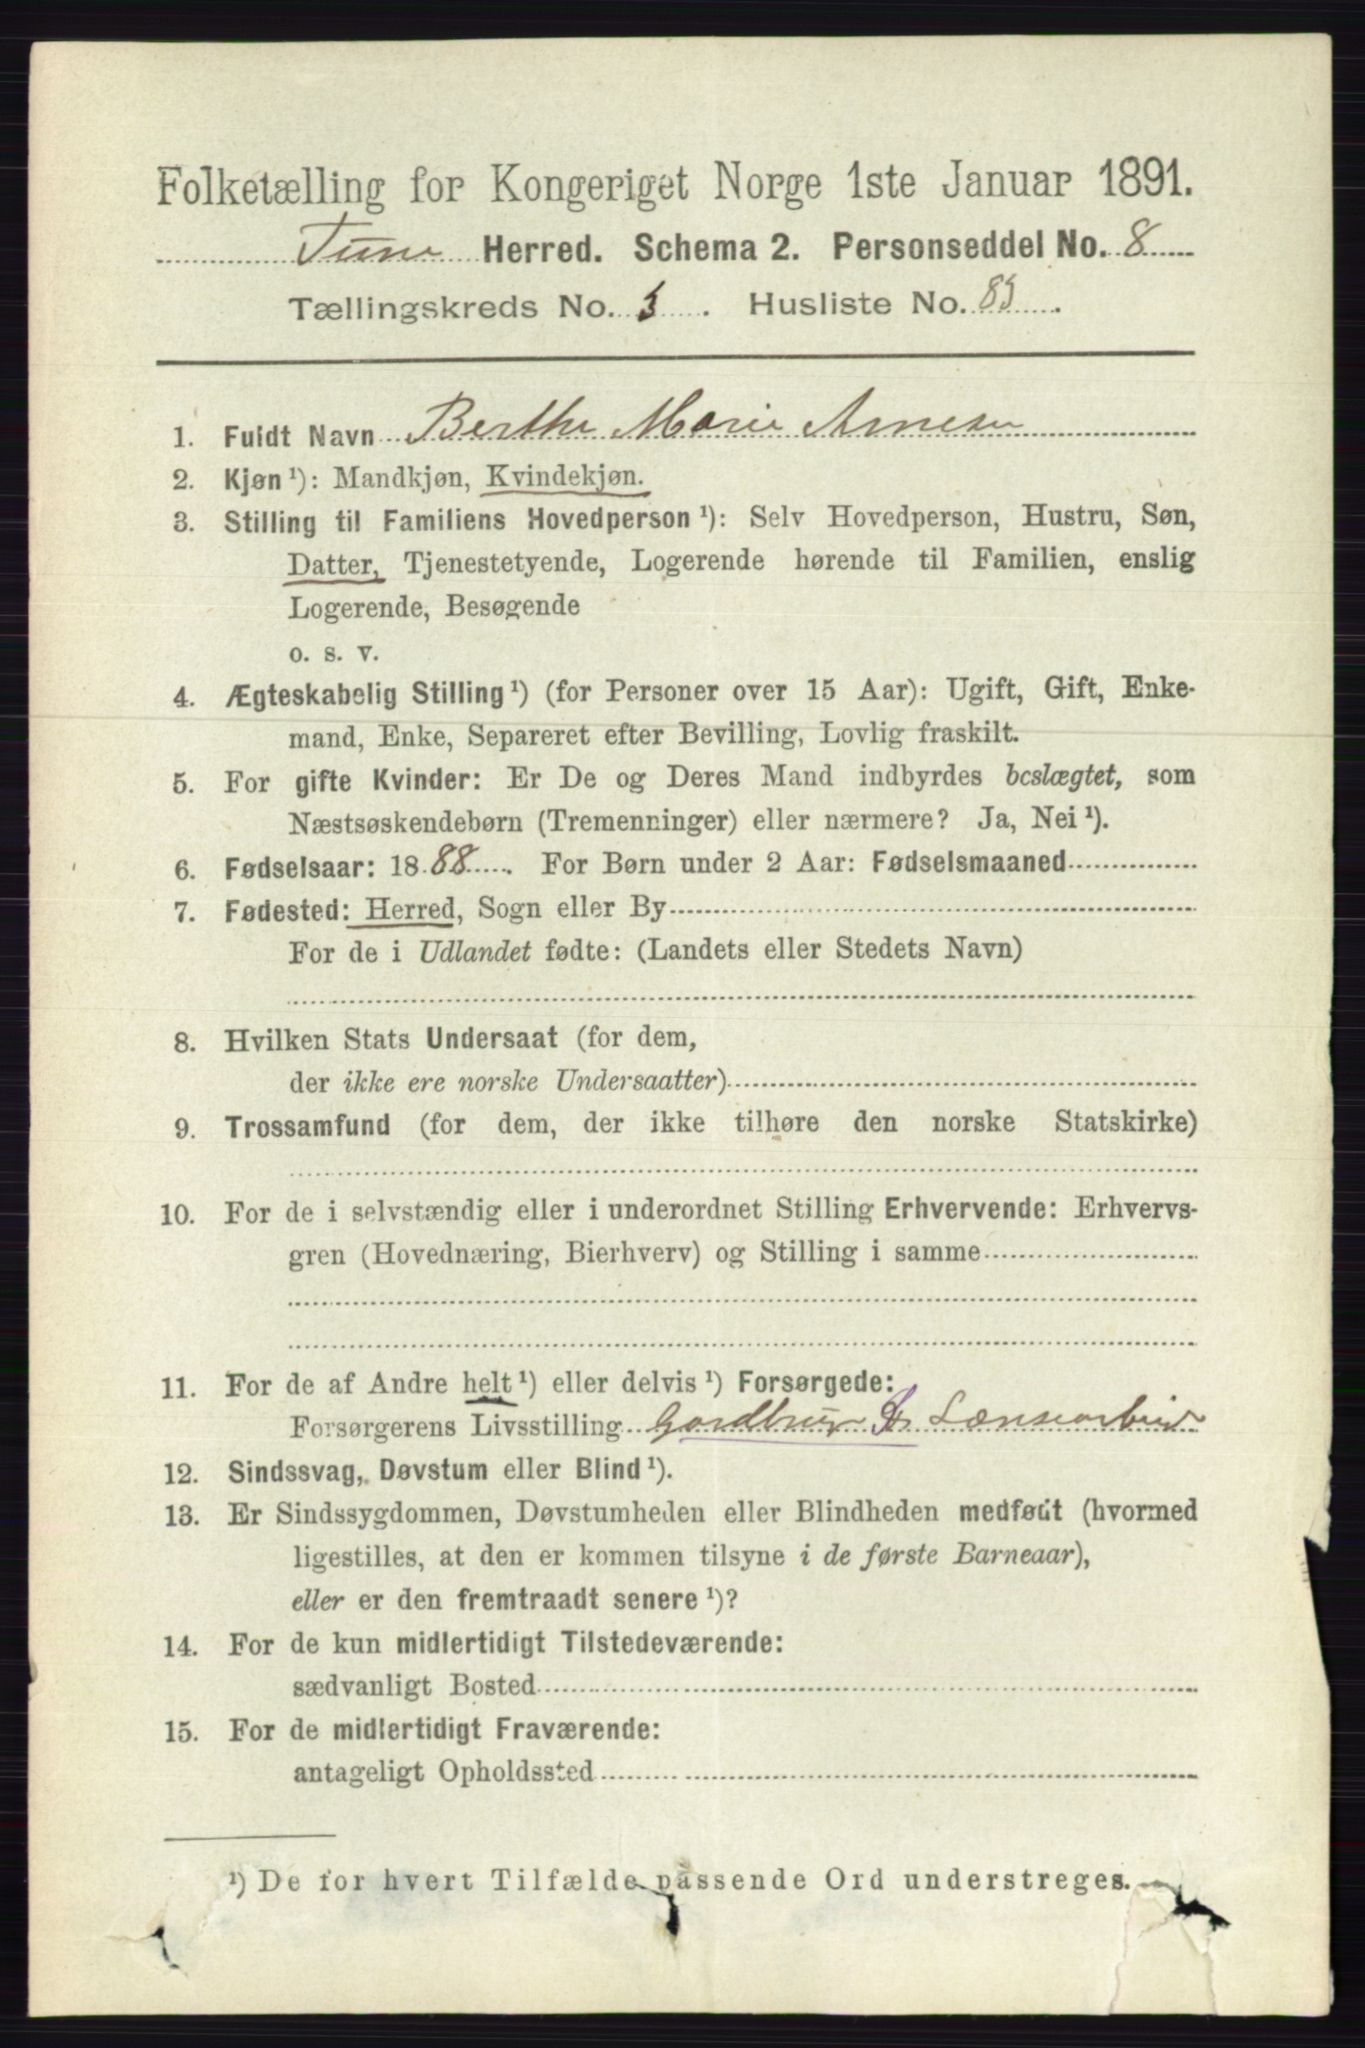 Folketælling for Kongeriget Norge 1ste Januar 1891.
Tune Herred. Schema 2. Personseddel No. 8
Tællingskreds No. 5. Husliste No. 85.
1. Fuldt Navn Berthe Marie Arnesen
2. Kjøn ¹): Mandkjøn, Kvindekjøn.
3. Stilling til Familiens Hovedperson ¹): Selv Hovedperson, Hustru, Søn,
Datter, Tjenestetyende, Logerende hørende til Familien, enslig
Logerende, Besøgende
o. s. v.
4. Ægteskabelig Stilling ¹) (for Personer over 15 Aar): Ugift, Gift, Enke-
mand, Enke, Separeret efter Bevilling, Lovlig fraskilt.
5. For gifte Kvinder: Er De og Deres Mand indbyrdes beslægtet, som
Næstsøskendebørn (Tremenninger) eller nærmere? Ja, Nei ¹).
6. Fødselsaar: 1888. For Børn under 2 Aar: Fødselsmaaned
7. Fødested: Herred, Sogn eller By
For de i Udlandet fødte: (Landets eller Stedets Navn)
8. Hvilken Stats Undersaat (for dem,
der ikke ere norske Undersaatter)
9. Trossamfund (for dem, der ikke tilhøre den norske Statskirke)
10. For de i selvstændig eller i underordnet Stilling Erhvervende: Erhvervs-
gren (Hovednæring, Bierhverv) og Stilling i samme
11. For de af Andre helt ¹) eller delvis ¹) Forsørgede:
Forsørgerens Livsstilling Gardbruger Lænsearbeid
12. Sindssvag, Døvstum eller Blind ¹).
13. Er Sindssygdommen, Døvstumheden eller Blindheden medfødt (hvormed
ligestilles, at den er kommen tilsyne i de første Barneaar),
eller er den fremtraadt senere ¹)?
14. For de kun midlertidigt Tilstedeværende:
sædvanligt Bosted
15. For de midlertidigt Fraværende:
antageligt Opholdssted
¹) De for hvert Tilfælde passende Ord understreges.